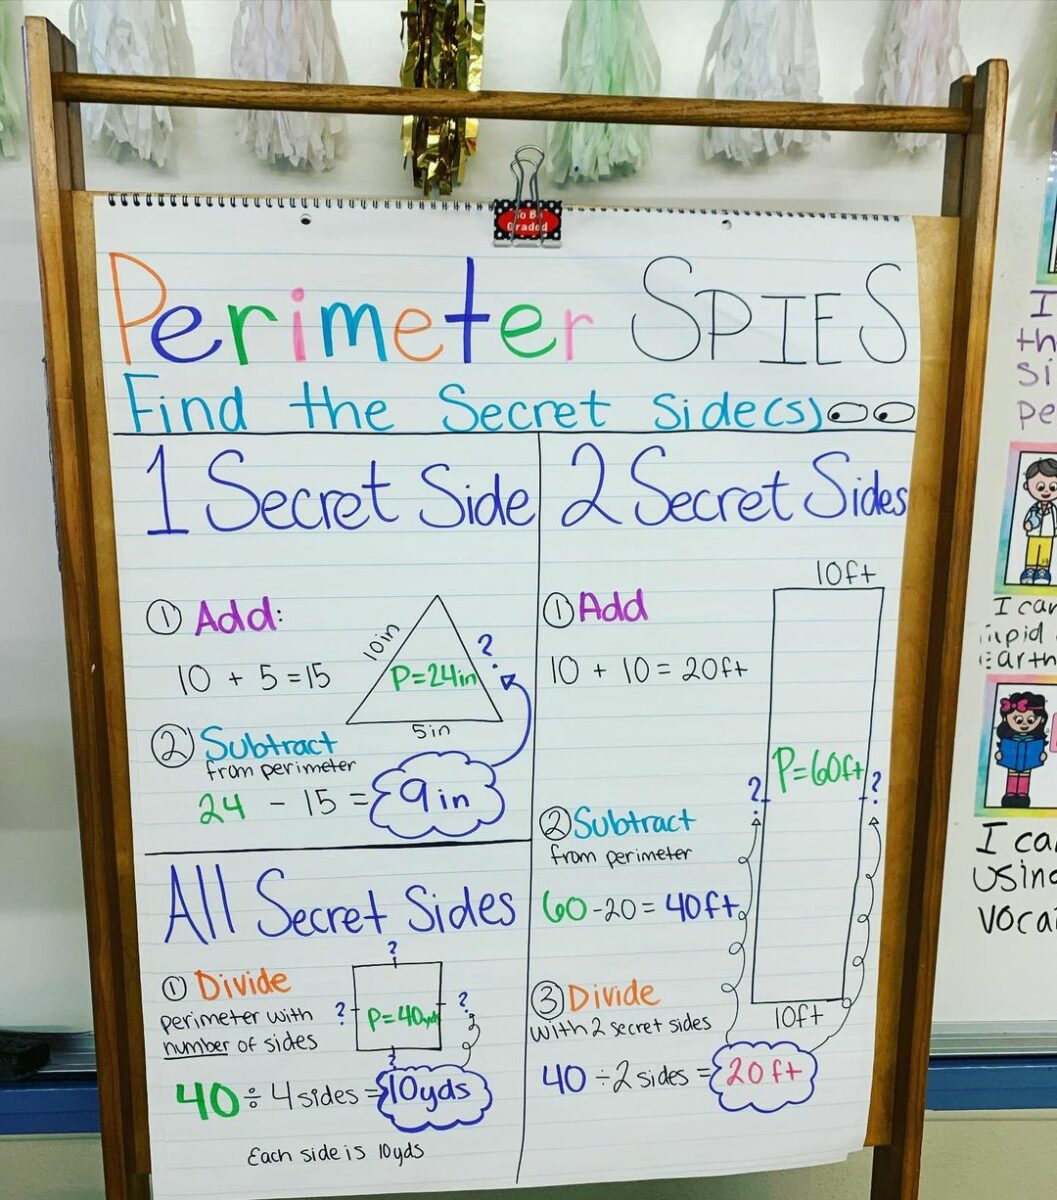 To Be
Graded
Perimeter SPIES
Find the Secret Side(s)
1 Secret Side
① Add:
10 + 5 = 15
10in
?
P=24in
5in
② Subtract
from perimeter
24 - 15 = 9in
All Secret Sides
① Divide
perimeter with
number of sides
?
?
P=40yds
?
?
40 ÷ 4 sides = 10yds
Each side is 10yds
2 Secret Sides
① Add
10 + 10 = 20ft
10ft
P=60ft
?
?
10ft
② Subtract
from perimeter
60 - 20 = 40ft
③ Divide
with 2 secret sides
40 ÷ 2 sides = 20ft
I
th
si
pe
I can
rapid
Earth
I ca
using
voca